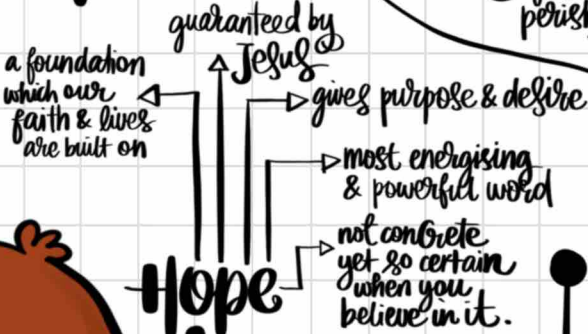 guaranteed by
Jesus
perish
a foundation
which our
faith & lives
are built on
gives purpose & desire
most energising
& powerful word
not concrete
yet so certain
when you
believe in it.
Hope